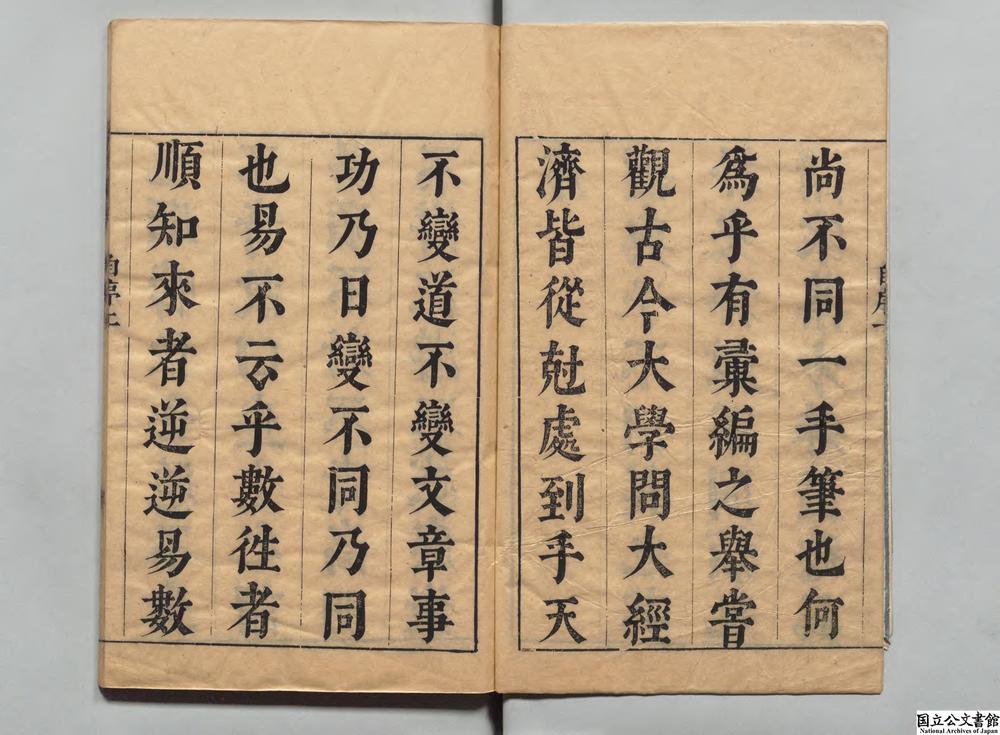 尚不同一手筆也何
爲乎有彚編之舉嘗
觀古今大學問大經
濟皆從尅處到乎天
不變道不變文章事
功乃日變不同乃同
也易不云乎數徃者
順知來者逆逆易數
国立公文書館
National Archives of Japan